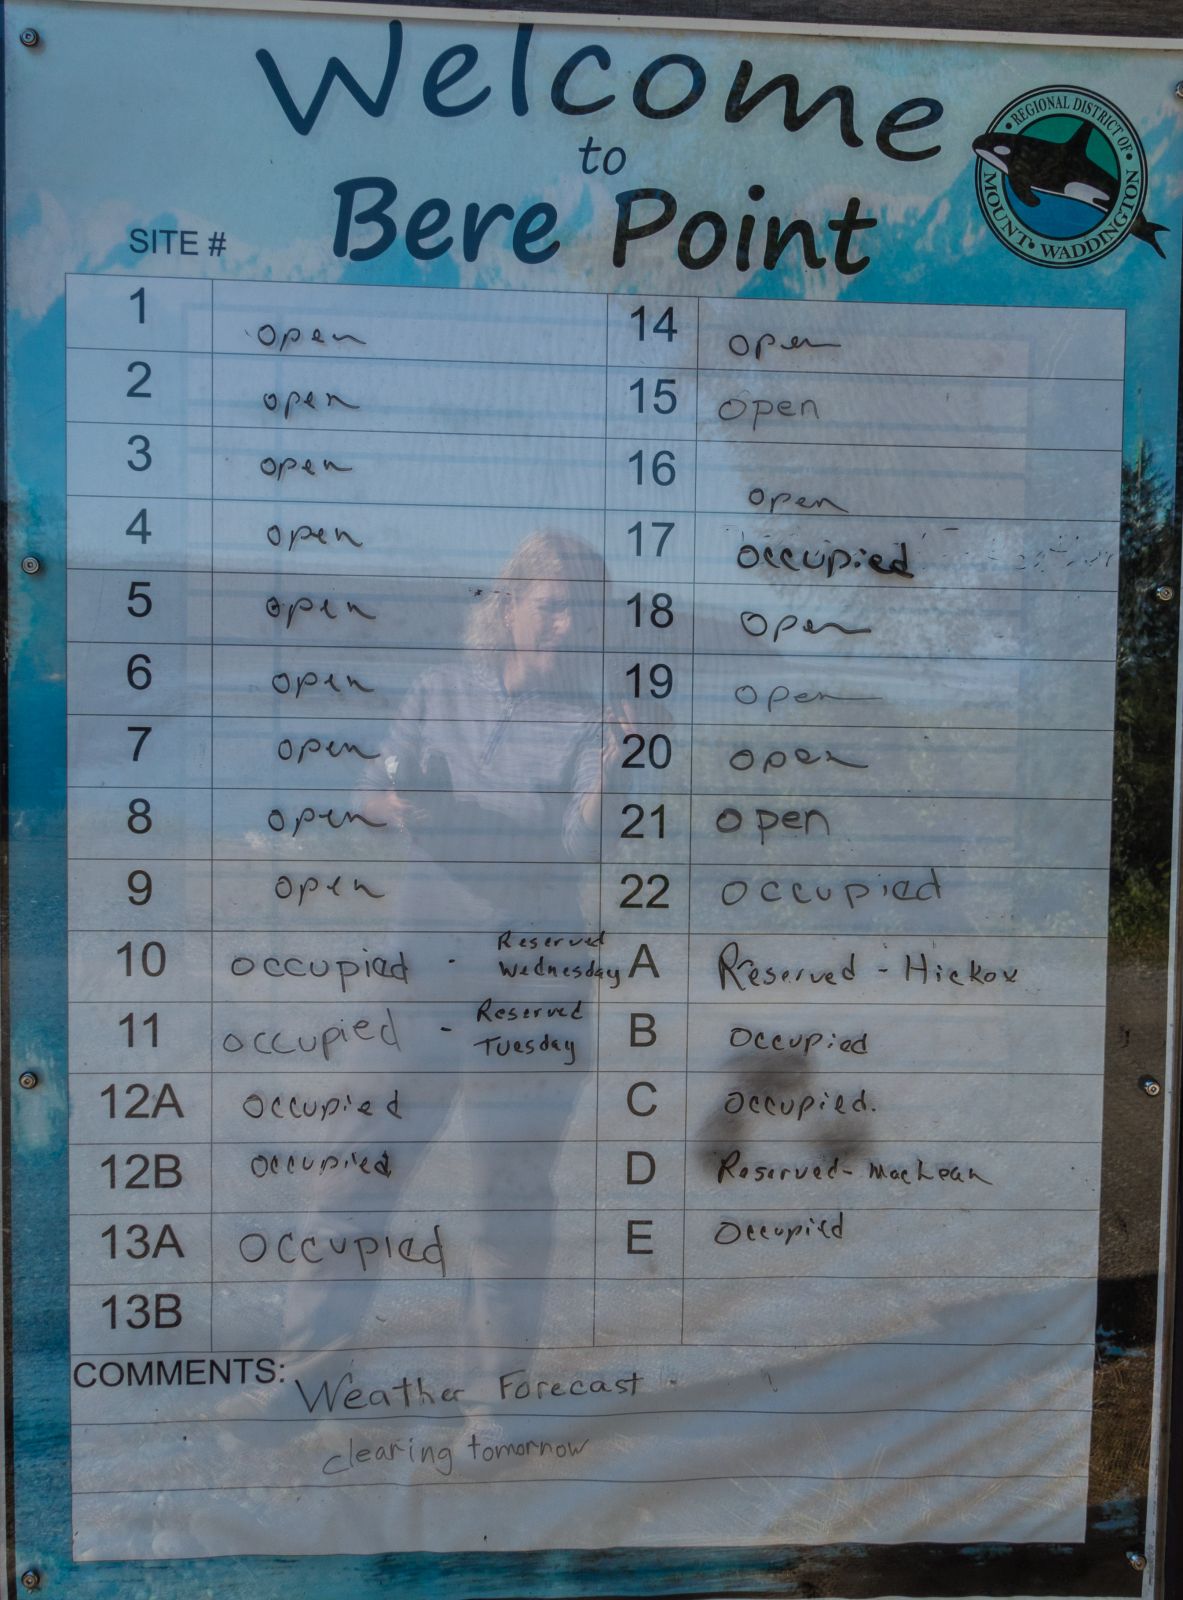 Welcome
to
Bere Point
REGIONAL DISTRICT OF
MOUNT WADDINGTON
SITE #
1 open 14 open
2 open 15 open
3 open 16 open
4 open 17 occupied
5 open 18 open
6 open 19 open
7 open 20 open
8 open 21 open
9 open 22 occupied
10 occupied - Reserved Wednesday A Reserved - Hickox
11 occupied - Reserved Tuesday B occupied
12A occupied C occupied.
12B occupied D Reserved - MacLean
13A occupied E occupied
13B
COMMENTS: Weather Forecast
clearing tomorrow